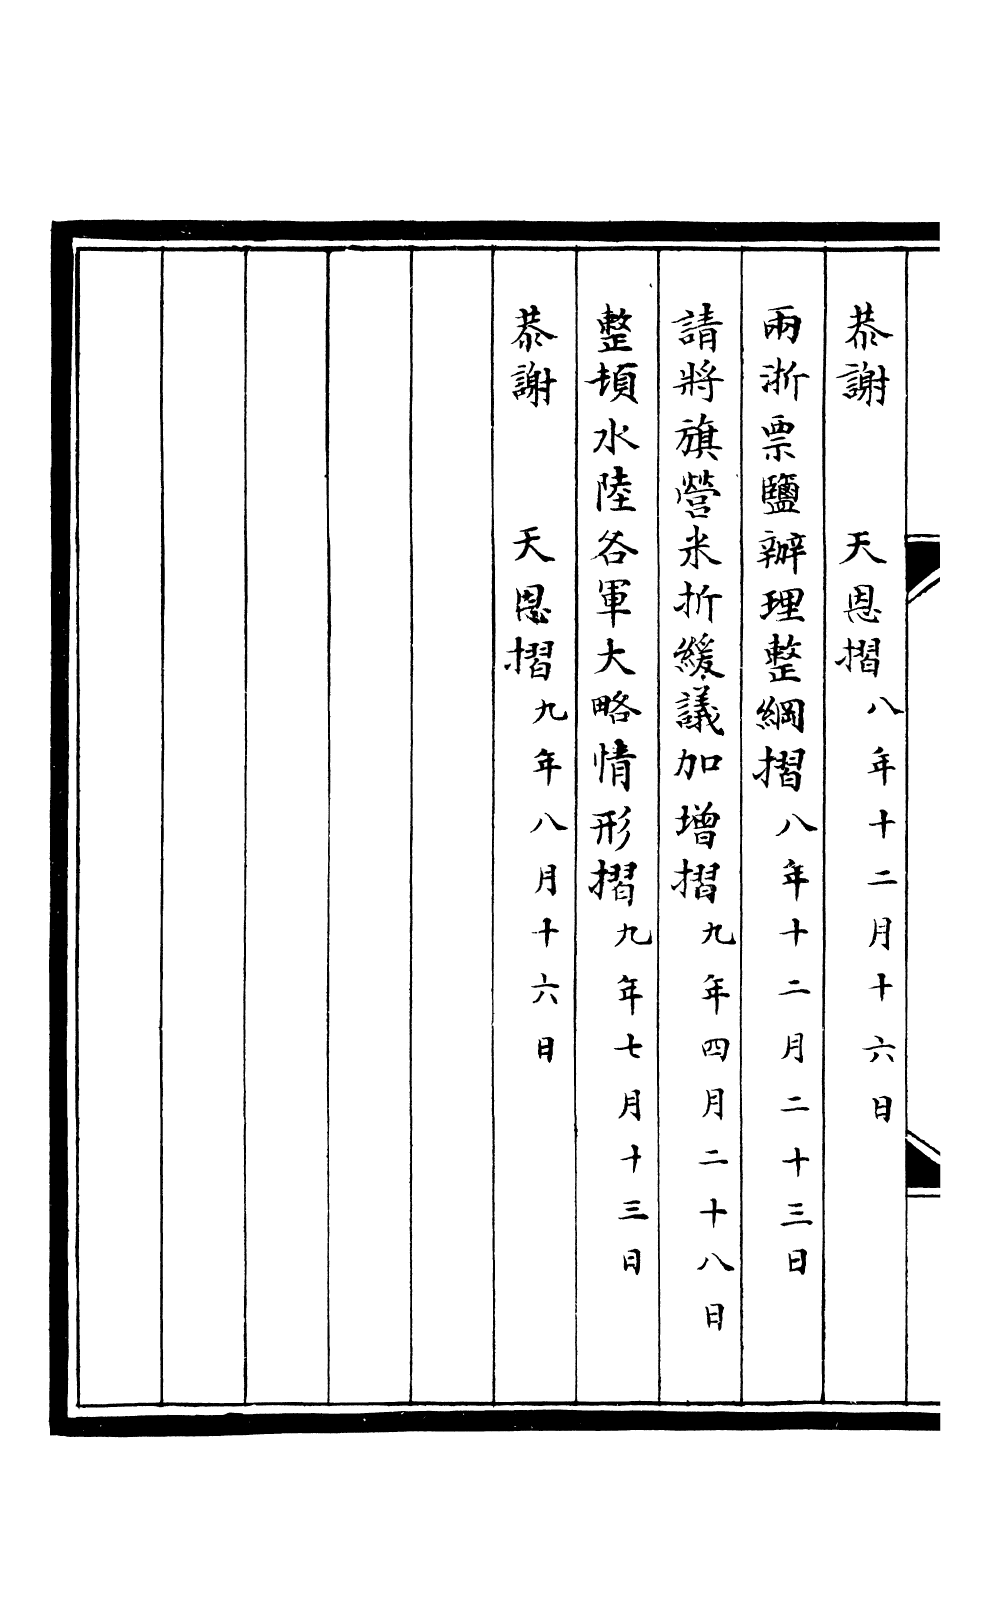 恭謝　　天恩摺八年十二月十六日
兩浙票鹽辦理整綱摺八年十二月二十三日
請將旗營米折緩議加增摺九年四月二十八日
整頓水陸各軍大略情形摺九年七月十三日
恭謝　　天恩摺九年八月十六日